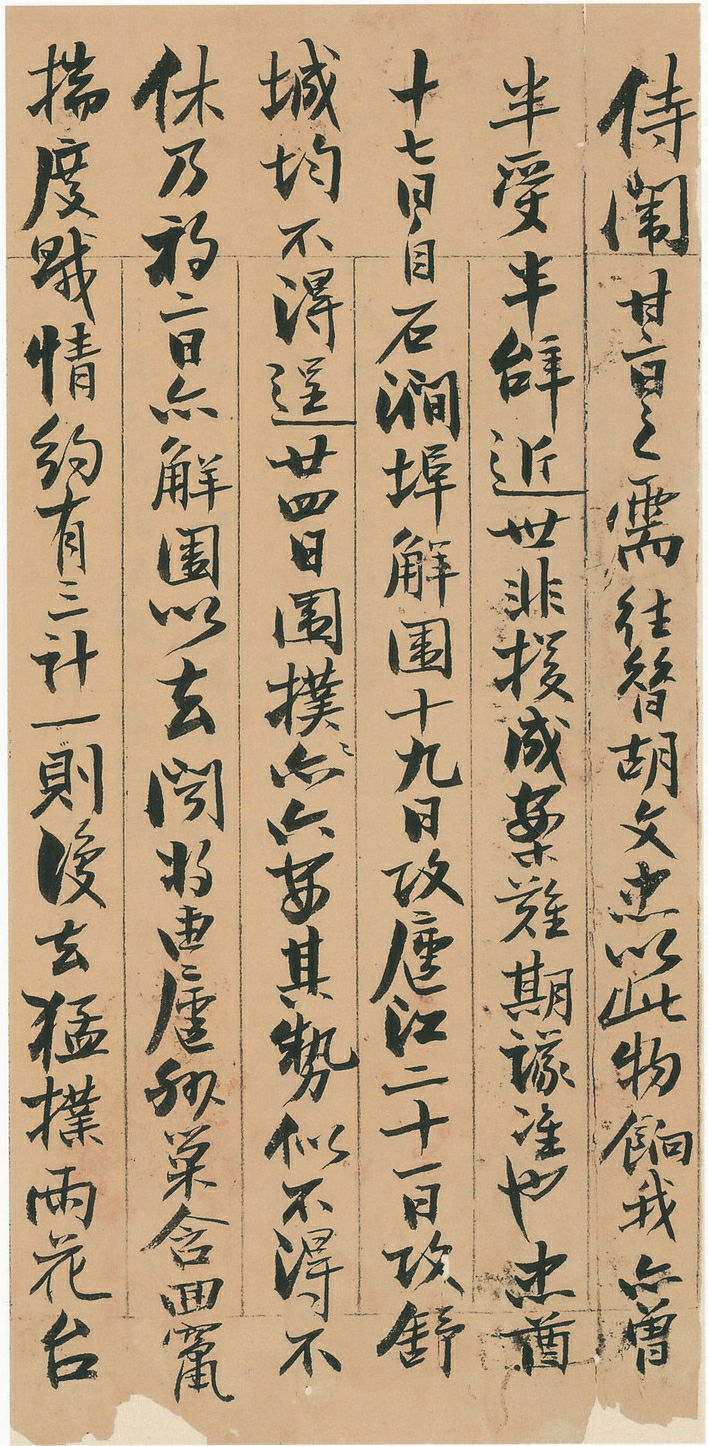 侍闈甘旨之需往昔胡文忠以此物餉我亦曾
半受半辝近世非援成案難期議准也忠酋
十七日自石澗埠解圍十九日攻廬江二十一日攻舒
城均不得逞廿四日圍撲六安其勢似不得不
休乃初二日亦解圍以去聞將由廬州巢含回竄
揣度賊情約有三計一則復去猛撲雨花台